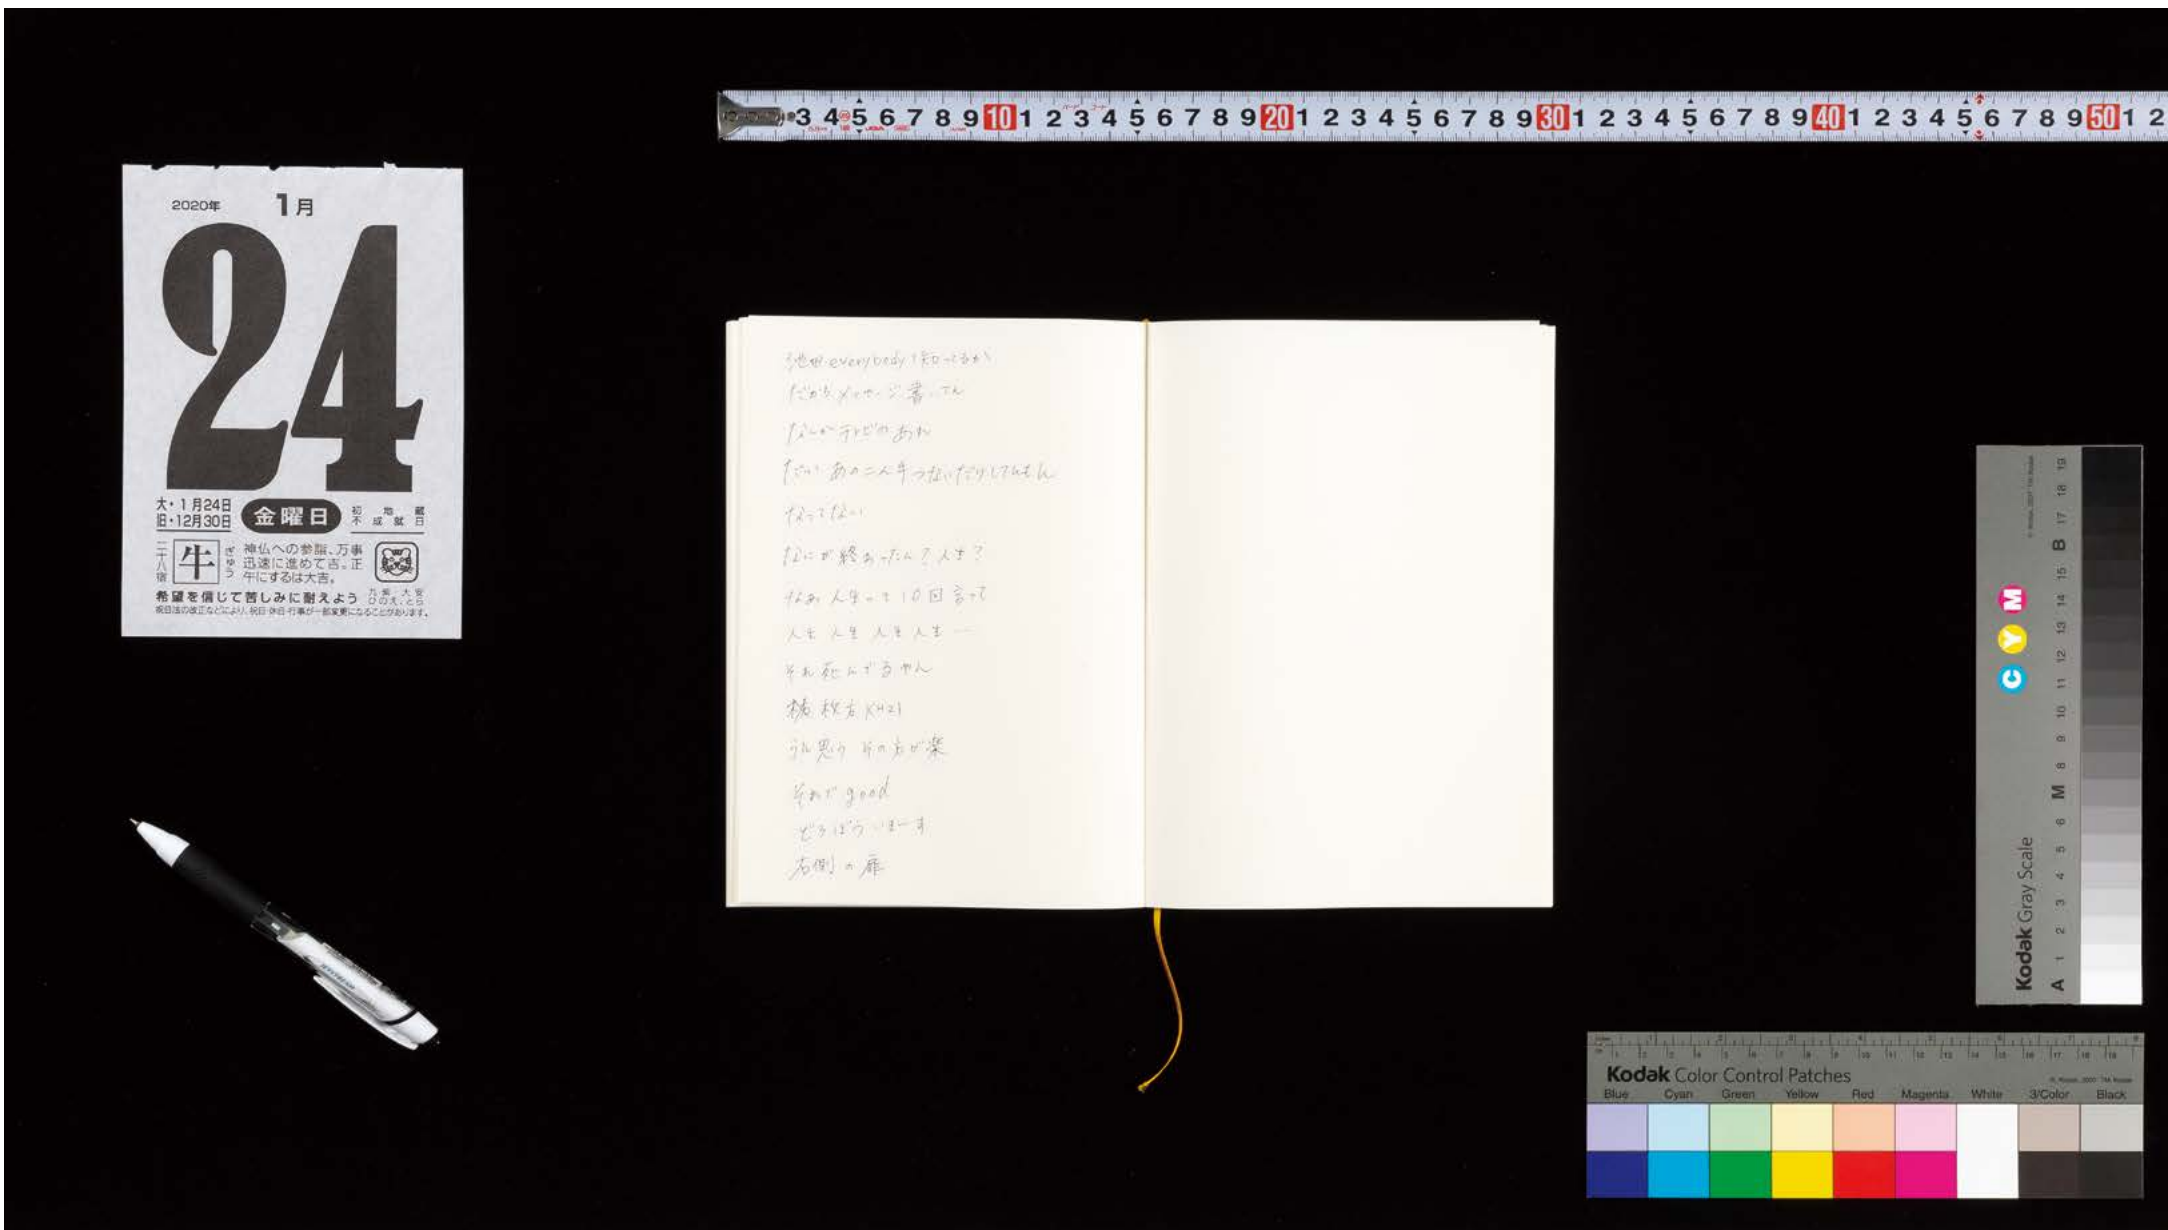 3 4 5 6 7 8 9 10 1 2 3 4 5 6 7 8 9 20 1 2 3 4 5 6 7 8 9 30 1 2 3 4 5 6 7 8 9 40 1 2 3 4 5 6 7 8 9 50 1 2
2020年 1月
24
大・1月24日
旧・12月30日
金曜日
初地蔵
不成就日
二十八宿
牛
ぎゅう
神仏への参詣、万事
迅速に進めて吉。正
午にするは大吉。
希望を信じて苦しみに耐えよう
九紫・大安
ひのえ・とら
祝日法の改正などにより、祝日・休日・行事が一部変更になることがあります。
everybody 知ってるか
だからメッセージ書いてん
なんかテレビのあれ
あの二人手つないだりしてんもん
なってない
なにが終わったん?人生?
なあ人生って10回言って
人生 人生 人生 人生…
それ死んでるやん
枚方
思う その方が楽
それで good
どろぼういまーす
右側の扉
Kodak Gray Scale
C Y M
A 1 2 3 4 5 6 M 8 9 10 11 12 13 14 15 B 17 18 19
Kodak Color Control Patches
Blue Cyan Green Yellow Red Magenta White 3/Color Black